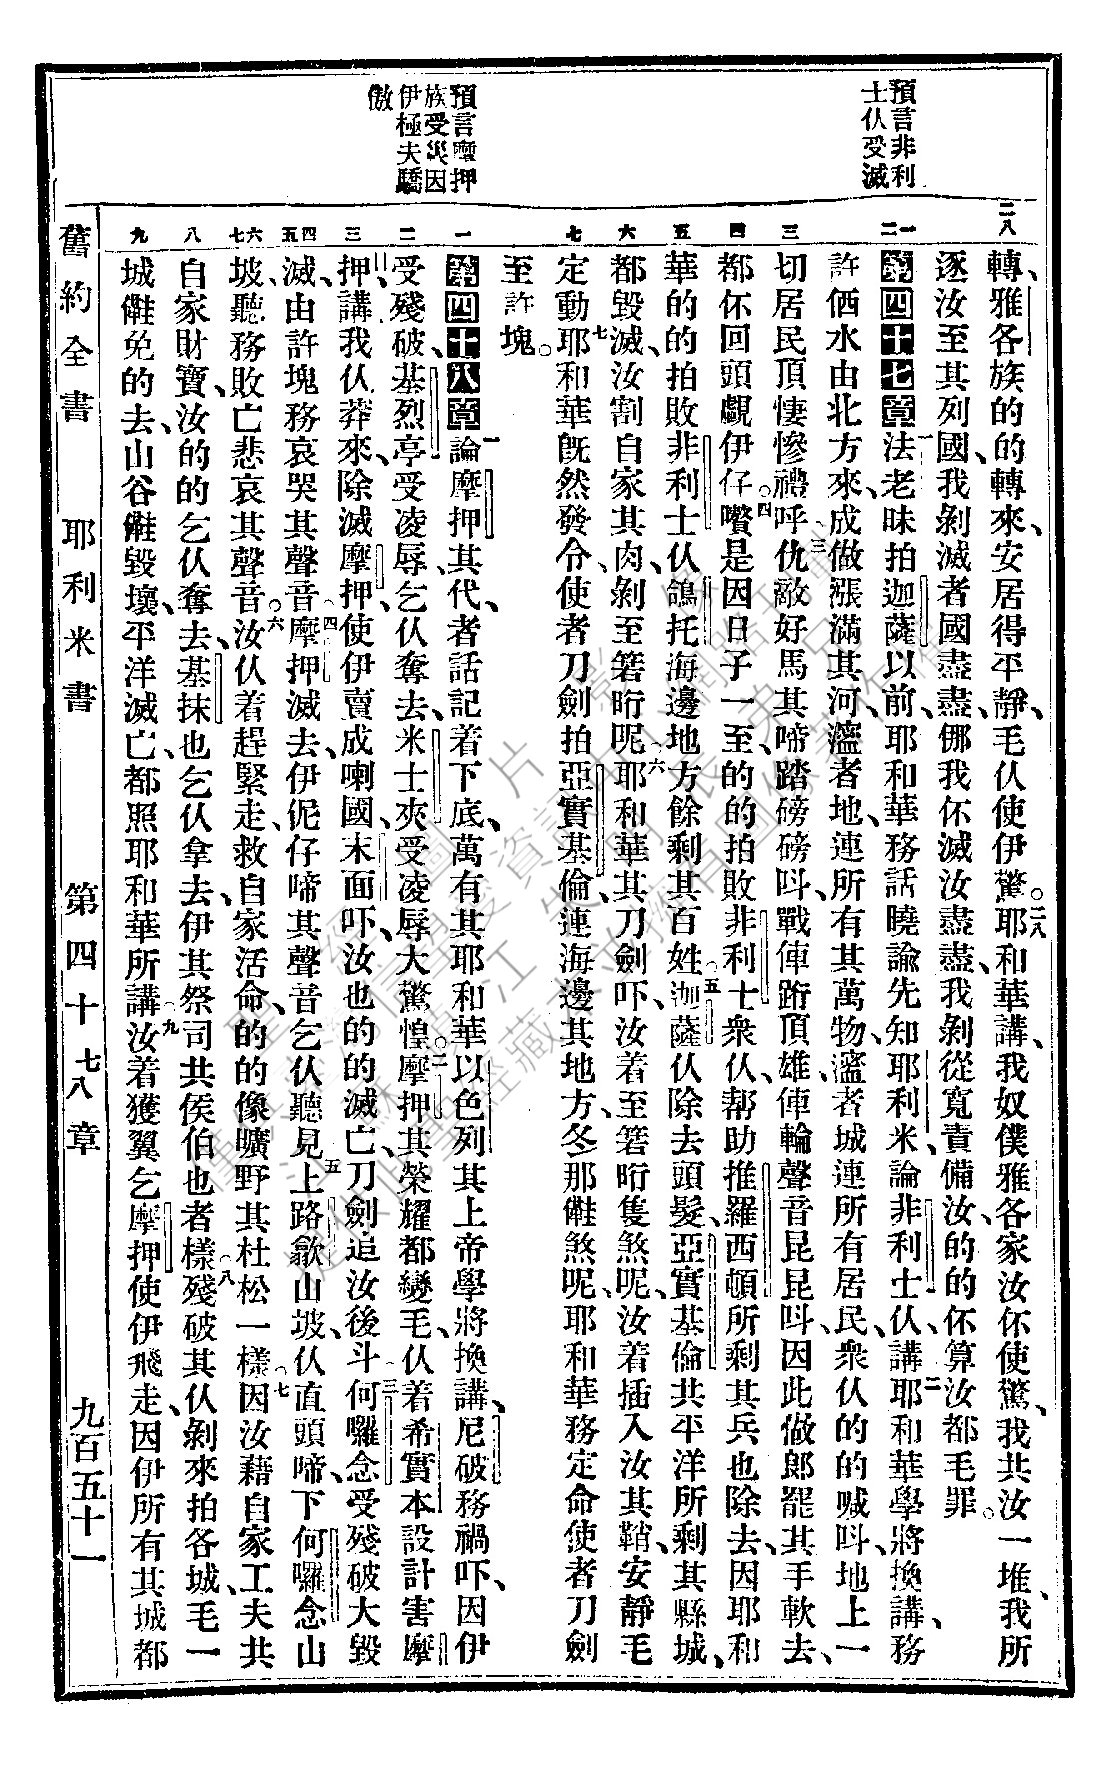 預言非利
士仏受滅
預言摩押
族受災因
伊極夫驕
傲
二八
一二
三
四
五
六
七
一
二
三
四五
六七
八
九
轉、雅各族的的轉來、安居得平靜、毛仏使伊驚。二八耶和華講、我奴僕雅各家汝伓使驚、我共汝一堆、我所
逐汝至其列國、我剝滅者國盡盡、㑚我伓滅汝盡盡、我剝從寬責備汝、的的伓算汝都毛罪。
第四十七章 一法老昧拍迦薩以前、耶和華務話曉諭先知耶利米、論非利士仏、二講、耶和華學將換講、務
許㑚水由北方來、成做漲滿其河、瀊者地、連所有其萬物、瀊者城連所有居民、衆仏的的喊呌、地上一
切居民頂悽慘禮呼、三仇敵好馬其啼踏磅磅呌、戰俥跨頂雄、俥輪聲音昆昆呌、因此做郎罷其手軟去、
都伓回頭覷伊仔囋。四是因日子一至、的的拍敗非利士衆仏、幫助推羅西頓所剩其兵也除去、因耶和
華的的拍敗非利士仏、鴿托海邊地方餘剩其百姓。五迦薩仏除去頭髮、亞實基倫共平洋所剩其縣城、
都毀滅、汝割自家其肉、剝至箬晌呢。六耶和華其刀劍吓、汝着至箬晌隻煞呢、汝着插入汝其鞘、安靜毛
定動。七耶和華旣然發令、使者刀劍拍亞實基倫、連海邊其地方、冬那㒁煞呢、耶和華務定命使者刀劍
至許塊。
第四十八章 一論摩押其代、者話記着下底、萬有其耶和華以色列其上帝學將換講、尼破務禍吓、因伊
受殘破、基烈亭受凌辱、乞仏奪去、米士夾受凌辱大驚惶。二摩押其榮耀都變毛、仏着希實本設計害摩
押、講、我仏莽來、除滅摩押、使伊賣成喇國、末面吓、汝也的的滅亡、刀劍追汝後斗。三何囉念受殘破大毀
滅、由許塊務哀哭其聲音。四摩押滅去、伊伲仔啼其聲音乞仏聽見。五上路歙山坡、仏直頭啼、下何囉念山
坡、聽務敗亡悲哀其聲音。六汝仏着趕緊走、救自家活命、的的像曠野其杜松一樣。七因汝藉自家工夫共
自家財寶、汝的的乞仏奪去、基抹也乞仏拿去、伊其祭司共侯伯也者樣。八殘破其仏剝來拍各城、毛一
城㒁免的去、山谷㒁毀壞、平洋滅亡、都照耶和華所講。九汝着獲翼乞摩押、使伊飛走、因伊所有其城都
舊約全書　耶利米書　第四十七八章　九百五十一